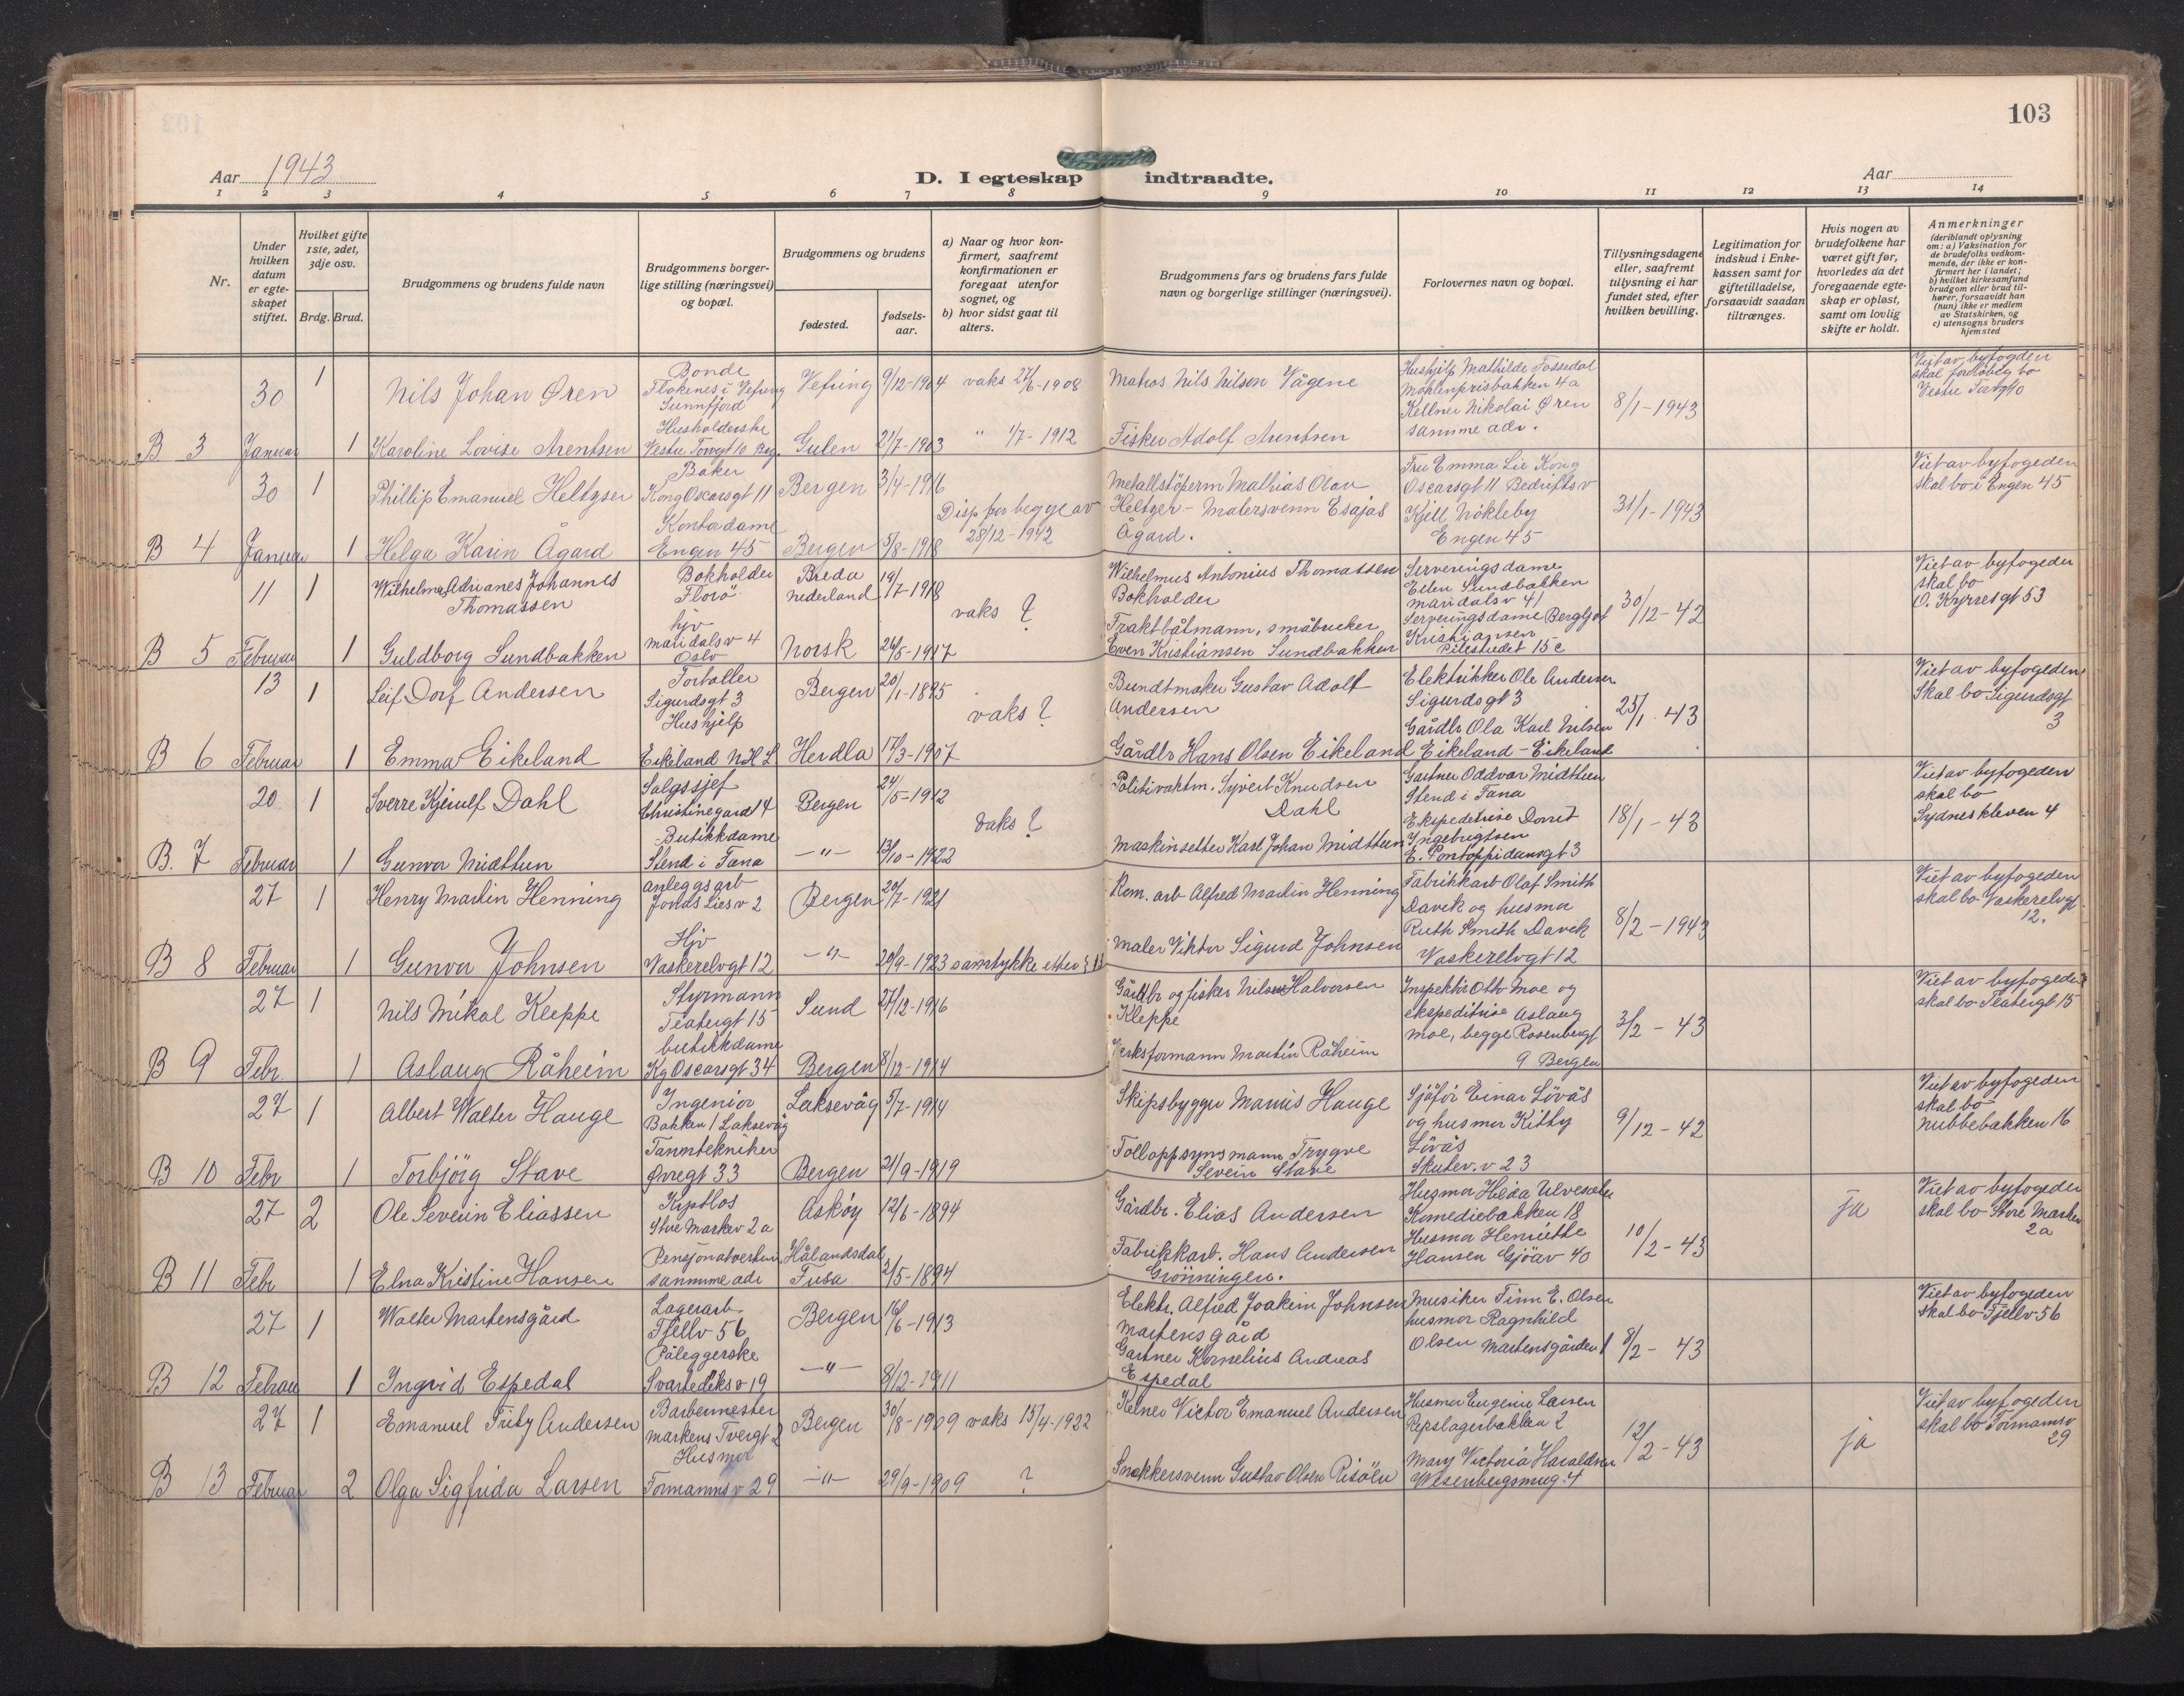 103
Aar 1943
D. I egteskap indtraadte.
Aar
1 2 3 4 5 6 7 8 9 10 11 12 13 14
Nr.
Under hvilken datum er egte-skapet stiftet.
Hvilket gifte 1ste, 2det, 3dje osv.
Brdg. Brud.
Brudgommens og brudens fulde navn
Brudgommens borger-
lige stilling (næringsvei)
og bopæl.
Brudgommens og brudens
fødested.
fødsels-
aar.
a) Naar og hvor kon-
firmert, saafremt
konfirmationen er
foregaat utenfor
sognet, og
b) hvor sidst gaat til
alters.
Brudgommens fars og brudens fars fulde
navn og borgerlige stillinger (næringsvei).
Forlovernes navn og bopæl.
Tillysningsdagene
eller, saafremt
tillysning ei har
fundet sted, efter
hvilken bevilling.
Legitimation for
indskud i Enke-
kassen samt for
giftetilladelse,
forsaavidt saadan
tiltrænges.
Hvis nogen av
brudefolkene har
været gift før,
hvorledes da det
foregaaende egte-
skap er opløst,
samt om lovlig
skifte er holdt.
Anmerkninger
(deriblandt oplysning
om: a) Vaksination for
de brudefolks vedkom-
mende, der ikke er kon-
firmert her i landet;
b) hvilket kirkesamfund
brudgom eller brud til-
hører, forsaavidt han
(hun) ikke er medlem
av Statskirken, og
c) utensogns bruders
hjemsted
B 3
30 Januar
1
Nils Johan Øren
Bonde
Flokenes i Vefring
Sunnfjord
Vefring
9/12-1904
vaks 27/6-1908
Matros Nils Nilsen Vågene
Hushjelp Mathilde Fossedal
Möhlenprisbakken 4a
Kellner Nikolai Øren
samme adr.
8/1-1943
Viet av byfogden
skal forløbeg bo
Vestre Torvgt 10
1
Karoline Lovise Arentsen
Husholderske
Vestre Torvgt 10 Brg.
Gulen
21/7-1903
" 1/7-1912
Fisker Adolf Arentsen
B 4
30 Januar
1
Phillip Emanuel Heltzser
Baker
Kong Oscarsgt 11
Bergen
3/4-1916
Disp for begge av
28/12-1942
Metallstöperm Mathias Olav
Heltzer - Malersvenn Esajas
Ågard.
Fru Emma Lie Kong
Oscarsgt 11 Bedriftsv
Kjell Nökleby
Engen 45
31/1-1943
Viet av byfogeden
skal bo i Engen 45
1
Helga Karin Ågard
Kontordame
Engen 45
Bergen
5/8-1918
B 5
11 Februar
1
Wilhelmus Adrianes Johannes
Thomassen
Bokholder
Florö
Breda
nederland
19/7-1918
vaks ?
Wilhelmus Antonius Thomassen
Bokholder
Serveringsdame
Ellen Sundbakken
Maridalsv 41
Serveringsdame Bergljot
Kristiansen
Pilestredet 15c
30/12-42
Viet av byfogeden
skal bo
O. Kyrresgt 53
1
Guldborg Sundbakken
hjv
Maridalsv 4
Oslo
Norsk
26/5-1917
Fraktbåtmann, småbruker
Even Kristiansen Sundbakken
B 6
13 Februar
1
Leif Dorf Andersen
Fortoller
Sigurdsgt 3
Bergen
20/1-1895
vaks ?
Bundtmaker Gustav Adolf
Andersen
Elektrikker Ole Andersen
Sigurdsgt 3
Gårdbr Ola Karl Nilsen
Eikeland - Eikeland
25/1-43
Viet av byfogeden
Skal bo Sigurdsgt
3
1
Emma Eikeland
Hushjelp
Eikeland N.H.L
Herdla
17/3-1907
Gårdbr Hans Olsen Eikeland
B. 7
20 Februar
1
Sverre Kjerulf Dahl
Salgssjef
Christinegard 14
Bergen
24/5-1912
Vaks ?
Politivaktm. Syvert Knudsen
Dahl
Gartner Oddvar Midttun
Stend i Fana
Ekspeditrise Dorrit
Ingebrigtsen
E. Pontoppidansgt 3
18/1-43
Viet av byfogeden
skal bo
Sydneskleven 4
1
Gunvor Midttun
Butikkdame
Stend i Fana
-"-
13/10-1922
Maskinsetter Karl Johan Midttun
B 8
27 Februar
1
Henry Martin Henning
Anleggsarb
Jonas Liesv 2
Bergen
20/7-1921
Kom. arb Alfred Martin Henning
Fabrikkarb Olaf Smith
Davik og husmor
Ruth Smith Davik
Vaskerelvgt 12
8/2-1943
Viet av byfogeden
skal bo Vaskerelvgt
12.
1
Gunvor Johnsen
Hjv
Vaskerelvgt 12
-"-
20/9-1923
samtykke etter § 11
Maler Viktor Sigurd Johnsen
B 9
27 Febr.
1
Nils Mikal Kleppe
Styrmann
Teatergt 15
Sund
27/12-1916
Gårdbr og fisker Nils Halvorsen
Kleppe
Inspektör Otto Moe og
ekspeditrise Aslaug
Moe, begge Rosenbergt
9 Bergen
3/2-43
Viet av byfogeden
skal bo Teatergt 15
1
Aslaug Råheim
butikkdame
Kg Oscarsgt 34
Bergen
8/12-1914
Verksformann Martin Råheim
B 10
27 Febr
1
Albert Walter Hauge
Ingeniör
Bakken 1 Laksevåg
Laksevåg
5/7-1914
Skipsbygger Marius Hauge
Sjåför Einar Lövås
og husmor Kitty
Lövås
Skutev. v 23
9/12-42
Viet av byfogeden
skal bo
Nubbebakken 16
1
Torbjörg Stave
Tanntekniker
Øvregt 33
Bergen
21/9-1919
Tolloppsynsmann Trygve
Severin Stave
B 11
27 Febr
2
Ole Severin Eliassen
Kjptlos
Store Markev 2a
Asköy
12/6-1894
Gårdbr. Elias Andersen
Husmor Hilda Ulvesæter
Komediebakken 18
Husmor Henriette
Hansen Gjöav 40
10/2-43
ja
Viet av byfogeden
skal bo Store Markev
2a
1
Elna Kristine Hansen
Pensjonatvertin
sammme adr
Hålandsdal
Fusa
2/5-1894
Fabrikkarb. Hans Andersen
Grönningen.
B 12
27 Februar
1
Walter Martensgård
Lagerarb.
Fjellv 56
Bergen
16/6-1913
Elektr. Alfred Joakim Johnsen
Martensgård
Musiker Finn E. Olsen
husmor Ragnhild
Olsen Martensgården 1
8/2-43
Viet av byfogeden
skal bo Fjellv 56
1
Ingrid Espedal
Påleggerske
Svartediksv 19
-"-
8/12-1911
Gartner Kornelius Andreas
Espedal
B 13
27 Februar
1
Emanuel Fritz Andersen
Barbermester
Markens Tvergt 2
Bergen
30/8-1909
vaks 15/4-1922
Kelner Victor Emanuel Andersen
Husmor Eugenie Larsen
Repslagerbakken 2
Mary Victoria Haraldsen
Wesenbergsmug. 4
12/2-43
ja
Viet av byfogeden
skal bo Formannsv
29
2
Olga Sigfrida Larsen
Husmor
Formannsv 29
-"-
29/9-1909
?
Snekkersvenn Gustav Olsen Risöen